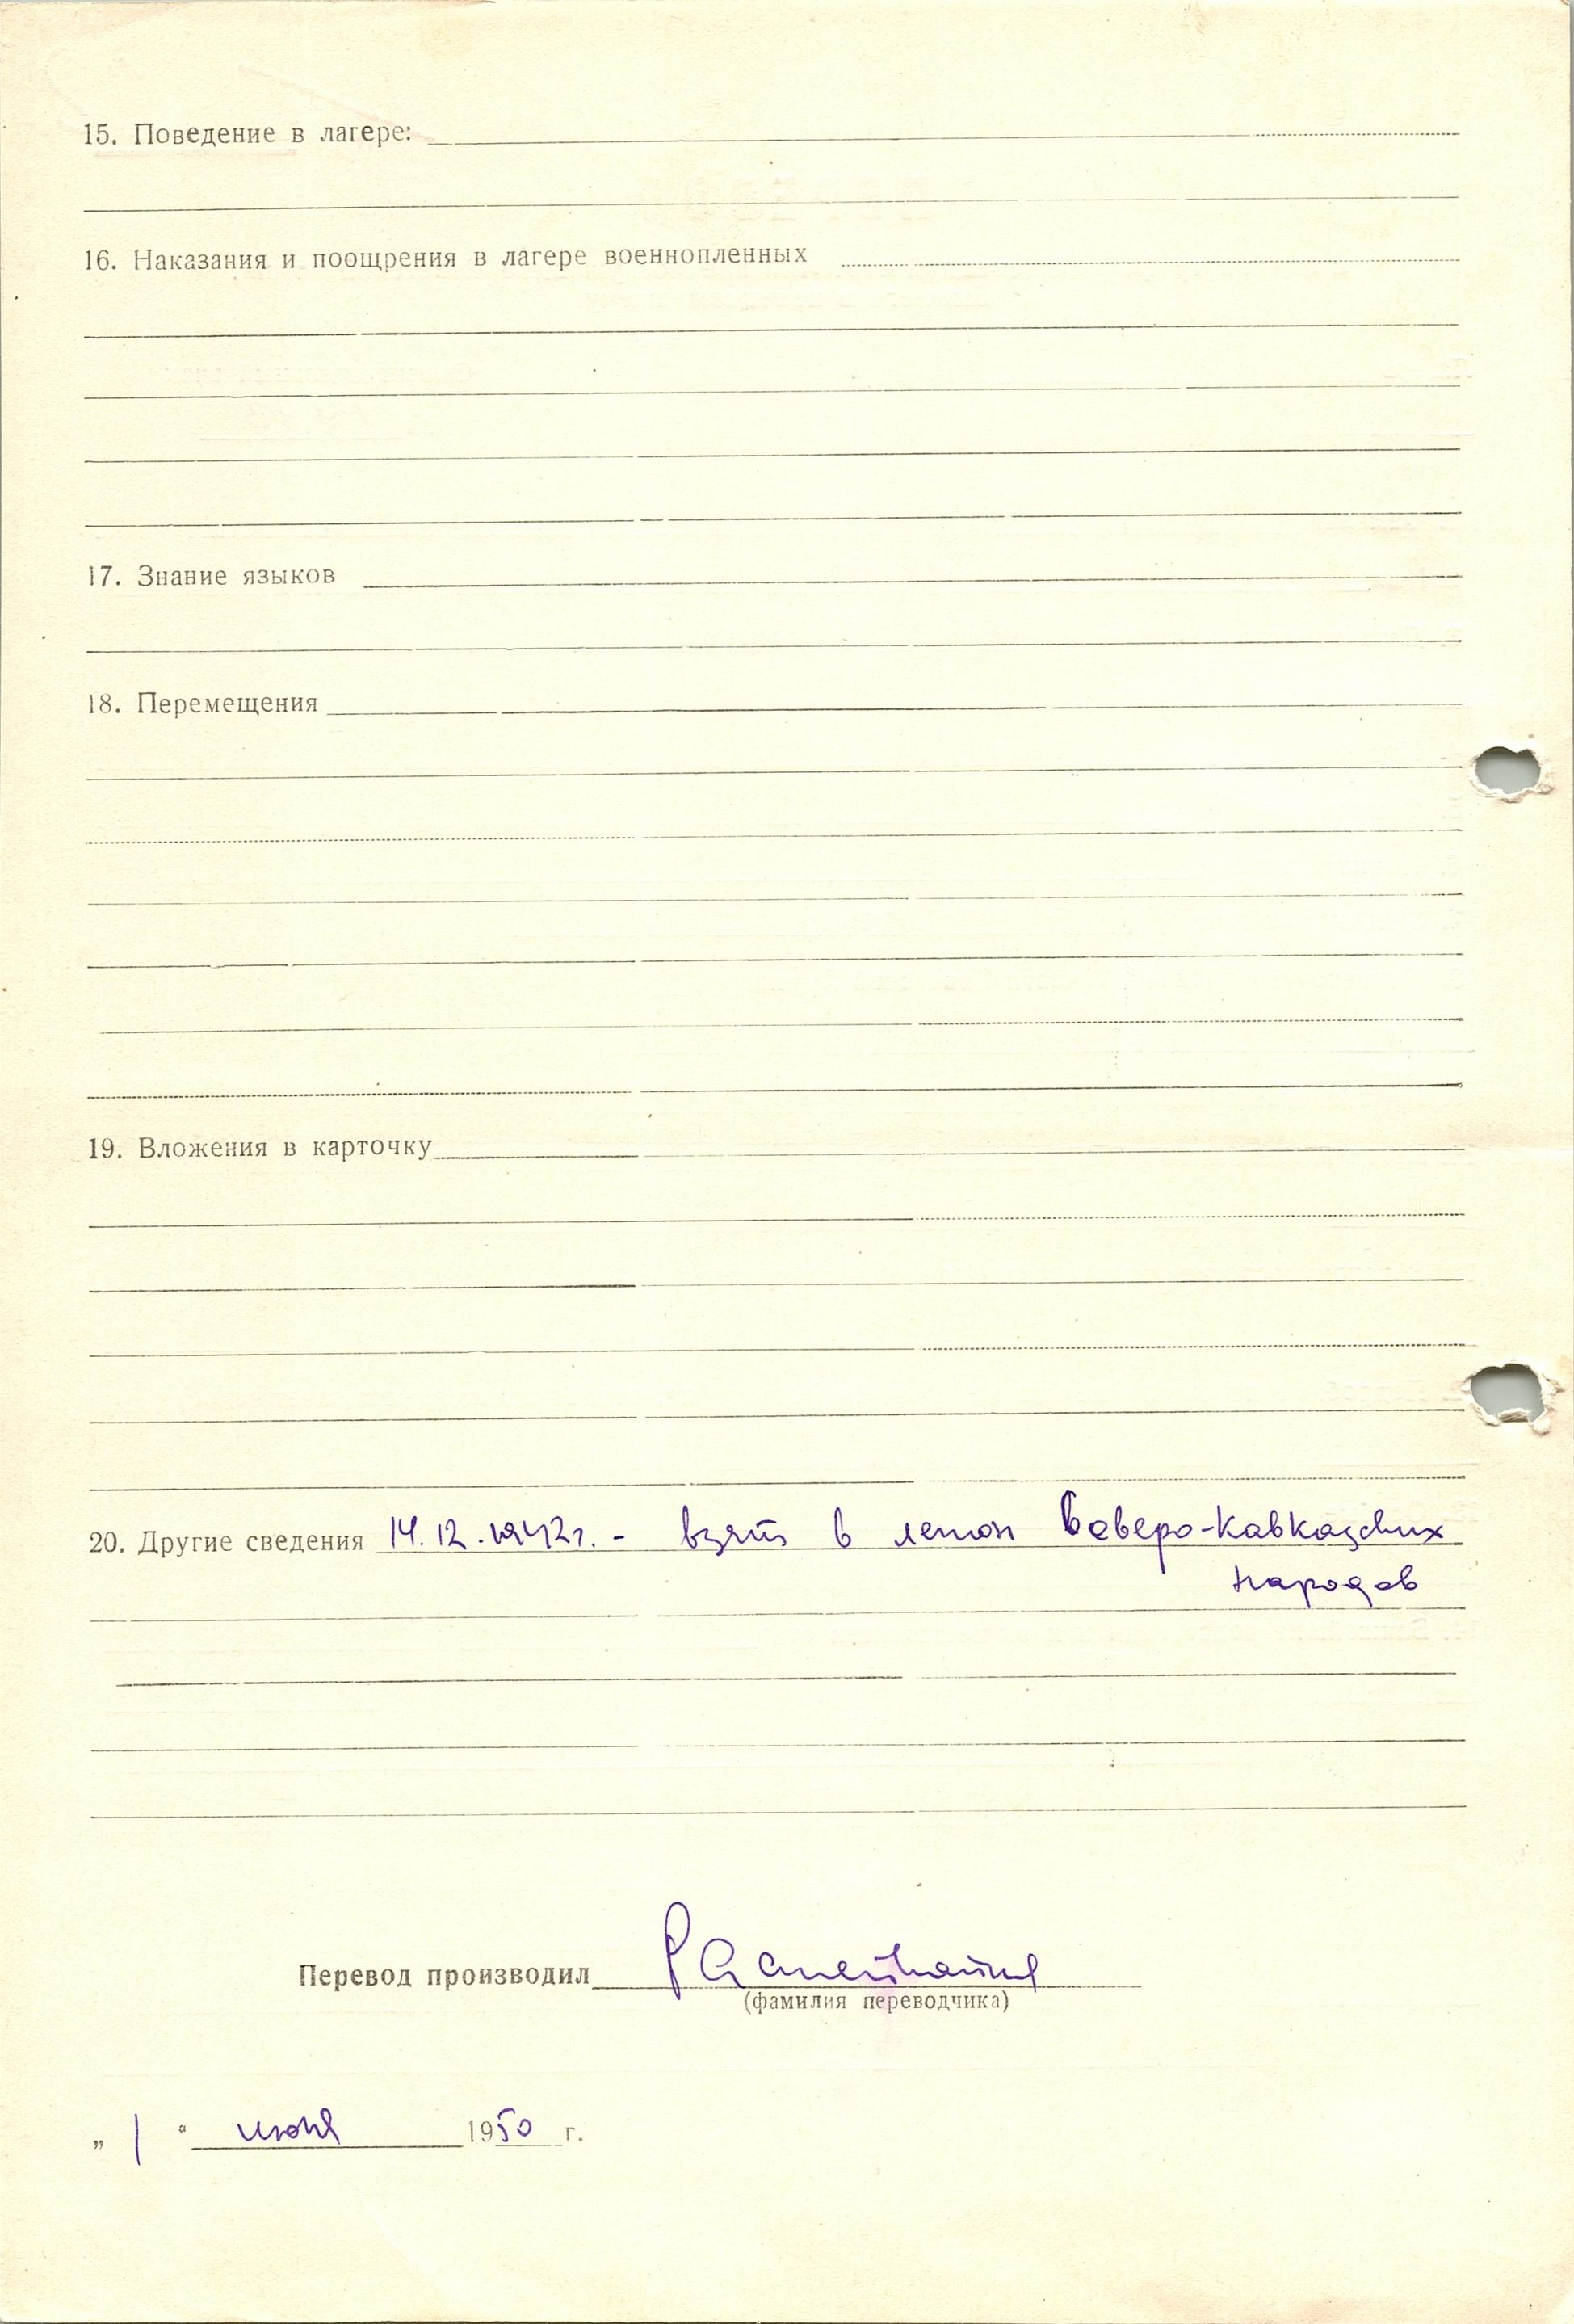 15. Поведение в лагере:
16. Наказания и поощрения в лагере военнопленных
17. Знание языков
18. Перемещения
19. Вложения в карточку
20. Другие сведения 14.12.1942г. - взят в легион Северо-Кавказских
народов
Перевод производил
(фамилия переводчика)
„ 1 " июня 1950 г.